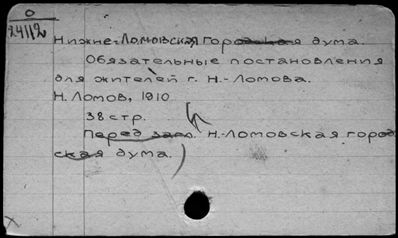 О
24112
Нижне-Ломовская городская дума.
Обязательные постановления
для жителей г. Н.-Ломова.
Н. Ломов, 1910
38 стр.
Перед загл. Н.-Ломовская город
ская дума.)